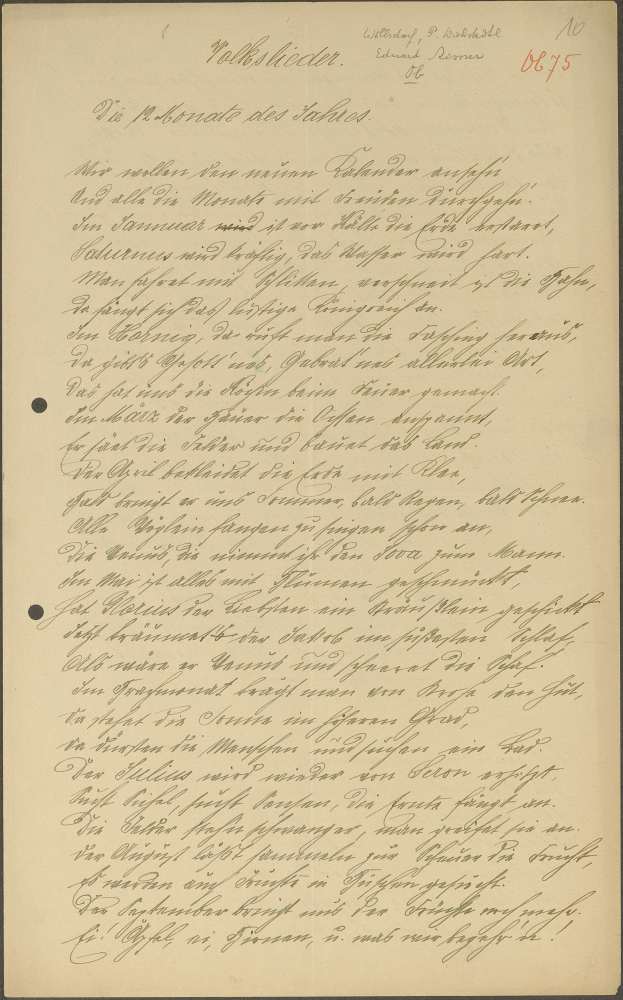 10
Wollsdorf, P.
Eduard
Ob
Ob 75
Volkslieder.
Die 12 Monate des Jahres.
Wir wollen den neuen Kalender ansehn
Und alle die Monate mit Freuden durchgehn.
Im Jannuar wird ist vor Kälte die Erde erstarrt,
Saturnus wird kräftig, das Wasser wird hart.
Man fahret mit Schlitten, verschneit ist die Bahn,
da fängt sich das lustige Königreich an.
Im Hornig, da ruft man die Fasching heraus,
da gibts G'sott'nes, Gebrat'nes allerlei Art,
Das hat uns die Köchin beim Feuer gemacht.
Im März der Bauer die Ochsen anspannt,
Er säet die Felder und bauet das Land.
Der April bekleidet die Erde mit Klee,
Bald bringt er uns Sommer, bald Regen, bald Schnee.
Alle Vöglein fangen zu singen schon an,
Die Venus, die nimmt sich den Jova zum Mann.
Im Mai ist alles mit Blumen geschmückt,
Hat der Liebsten ein Sträußlein geschickt
Jetzt träumet's der Jakob im süßesten Schlaf,
Als wäre er Venus und scheeret die Schaf.
Im Brachmonat trägt man von Stroh den Hut,
da stehet die Sonne im höheren Grad,
da dürsten die Menschen und suchen ein Bad.
Der Julius wird wieder von erhitzt,
Sucht Sichel, sucht Sensen, die Ernte fängt an.
Die Felder stehn schwanger, man greifet sie an.
Der August läßt sammeln zur Scheuer die Frucht,
Es werden auch Früchte in Büschen gesucht.
Der September bringt uns der Früchte noch mehr.
Ei! Äpfel, ei, Birnen, u. was wir begehr'n!